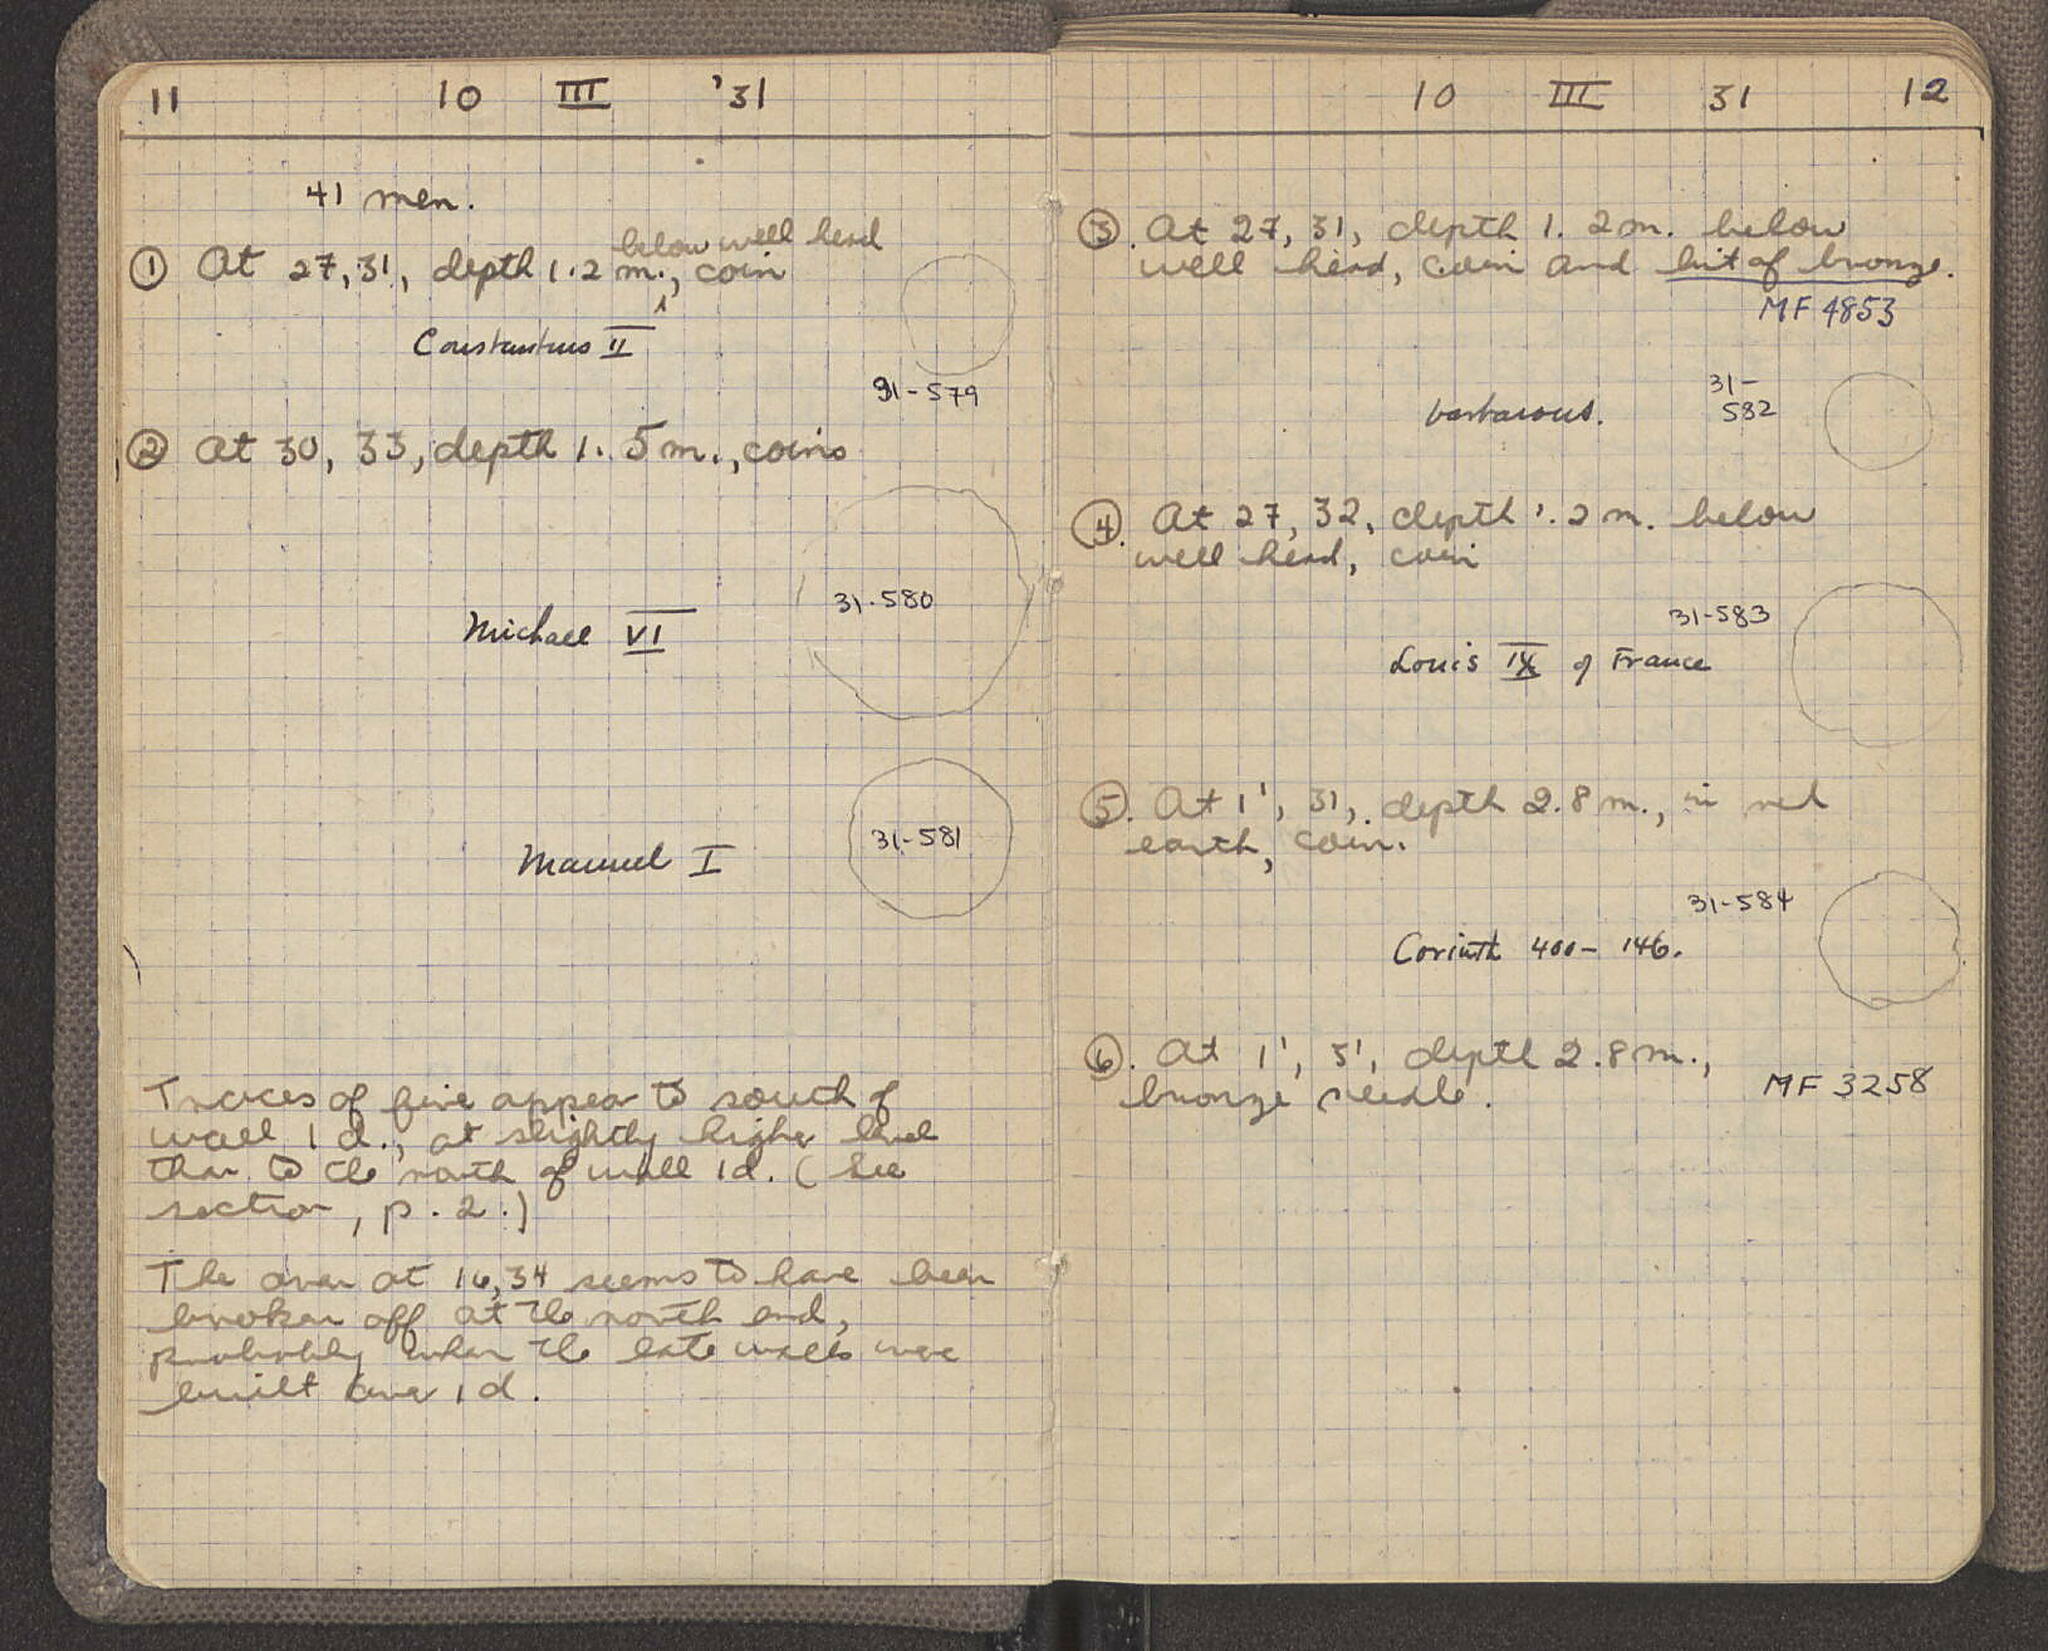 11 10 III '31
41 men.
below well head
① At 27, 31, depth 1.2 m., coin
Constantius II
31-579
② At 30, 33, depth 1.5 m., coins
31-580
Michael VI
31-581
Manuel I
Traces of fire appear to south of
wall 1 d., at slightly higher level
than to the north of wall 1d. (See
section, p. 2.)
The oven at 16,34 seems to have been
broken off at the north end,
probably when the late walls were
built over 1 d.
10 III 31 12
③. At 27, 31, depth 1.2 m. below
well head, coin and bit of bronze.
MF 4853
31-
582
barbarous.
④. At 27, 32, depth 1.2 m. below
well head, coin
31-583
Louis IX of France
⑤. At 1', 31, depth 2.8 m., in red
earth, coin.
31-584
Corinth 400-146.
⑥. At 1', 5', depth 2.8 m.,
bronze needle.
MF 3258